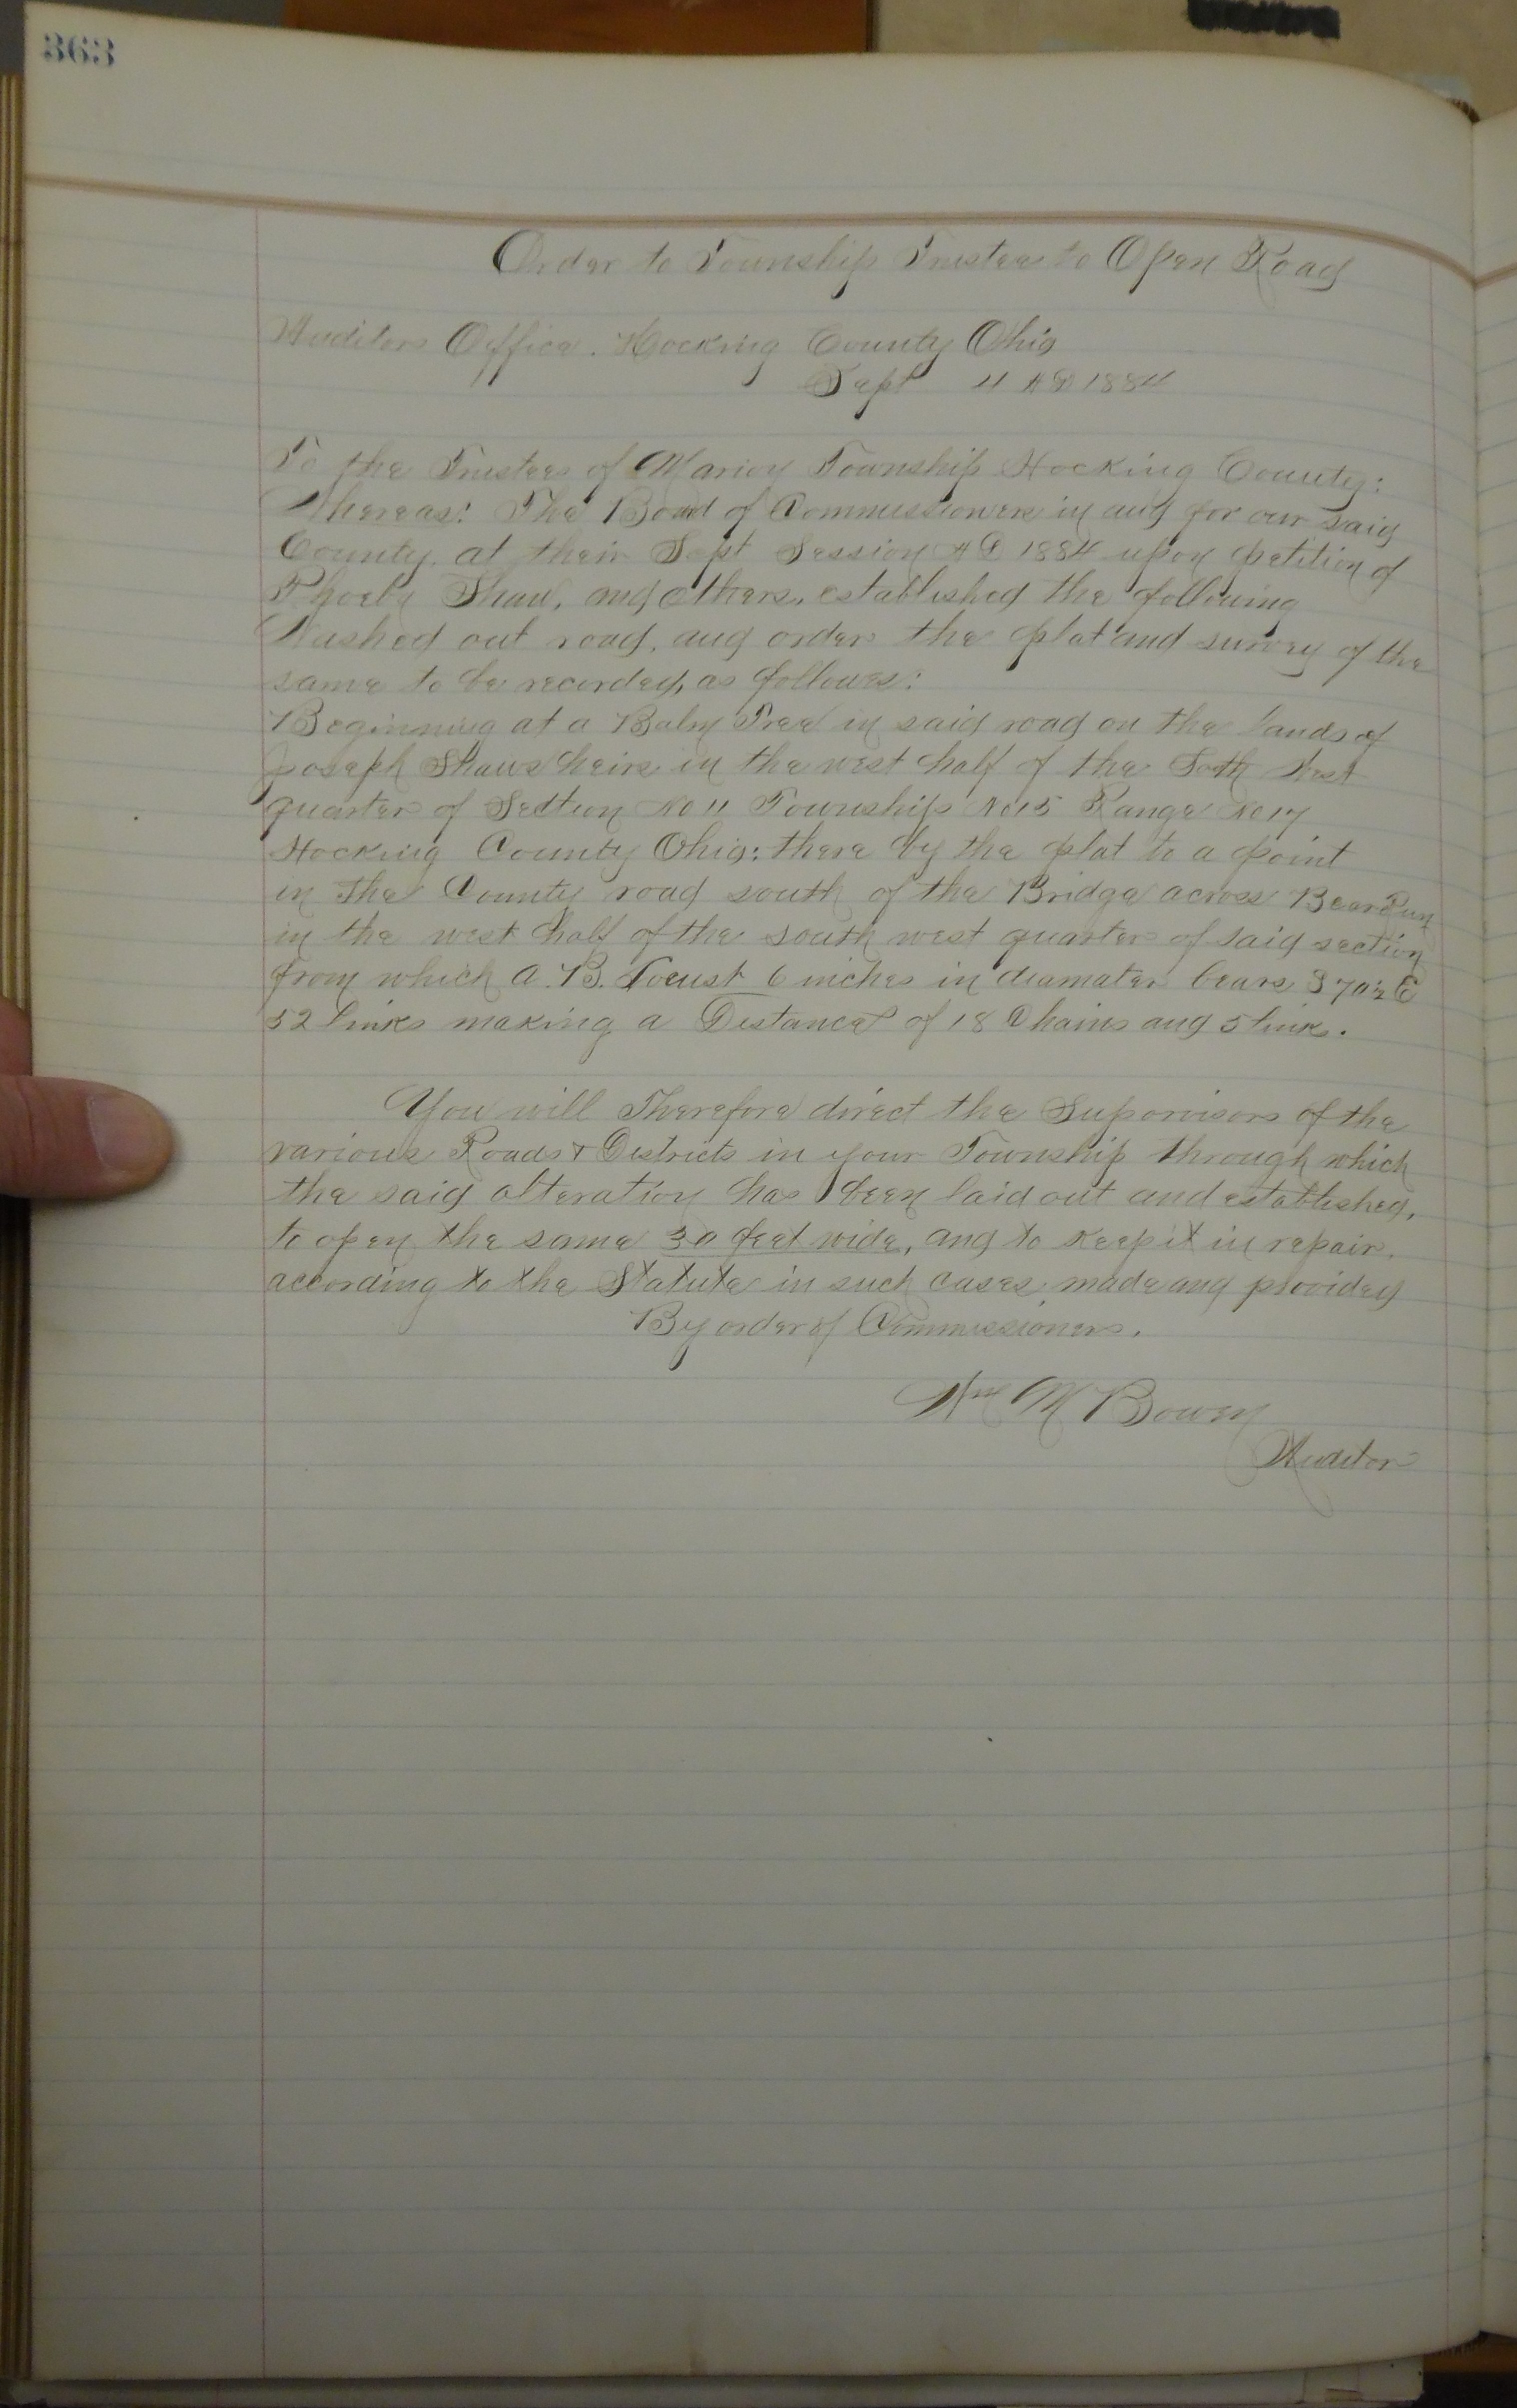 363
Order to Township Trustees to Open Road
Auditors Office. Hocking County Ohio
Sept 4 AD 1884
To the Trustees of Marion Township Hocking County:
Whereas: The Board of Commissioners in and for our said
County. at their Sept Session AD 1884 upon petition of
Phoeby Shaw, and others, established the following
Washed out road, and order the plat and survey of the
same to be recorded, as follows:
Beginning at a Balm Tree in said road on the lands of
Joseph Shaws heirs in the west half of the South West
quarter of Section No 11 Township No 15 Range No 17
Hocking County Ohio: there by the plat to a point
in The County road south of the Bridge across Bear Run
in the west half of the south west quarter of said section
from which a. B. Locust 6 inches in diamater bears S 70½ E
52 links making a Distance of 18 Chains and 5 link.
You will Therefore direct the Supervisors of the
various Roads & Districts in your Township through which
the said alteration has been laid out and established,
to open the same 30 feet wide, and to Keep it in repair.
according to the Statute in such cases, made and provided
By order of Commissioners.
Wm M Bowen
Auditor